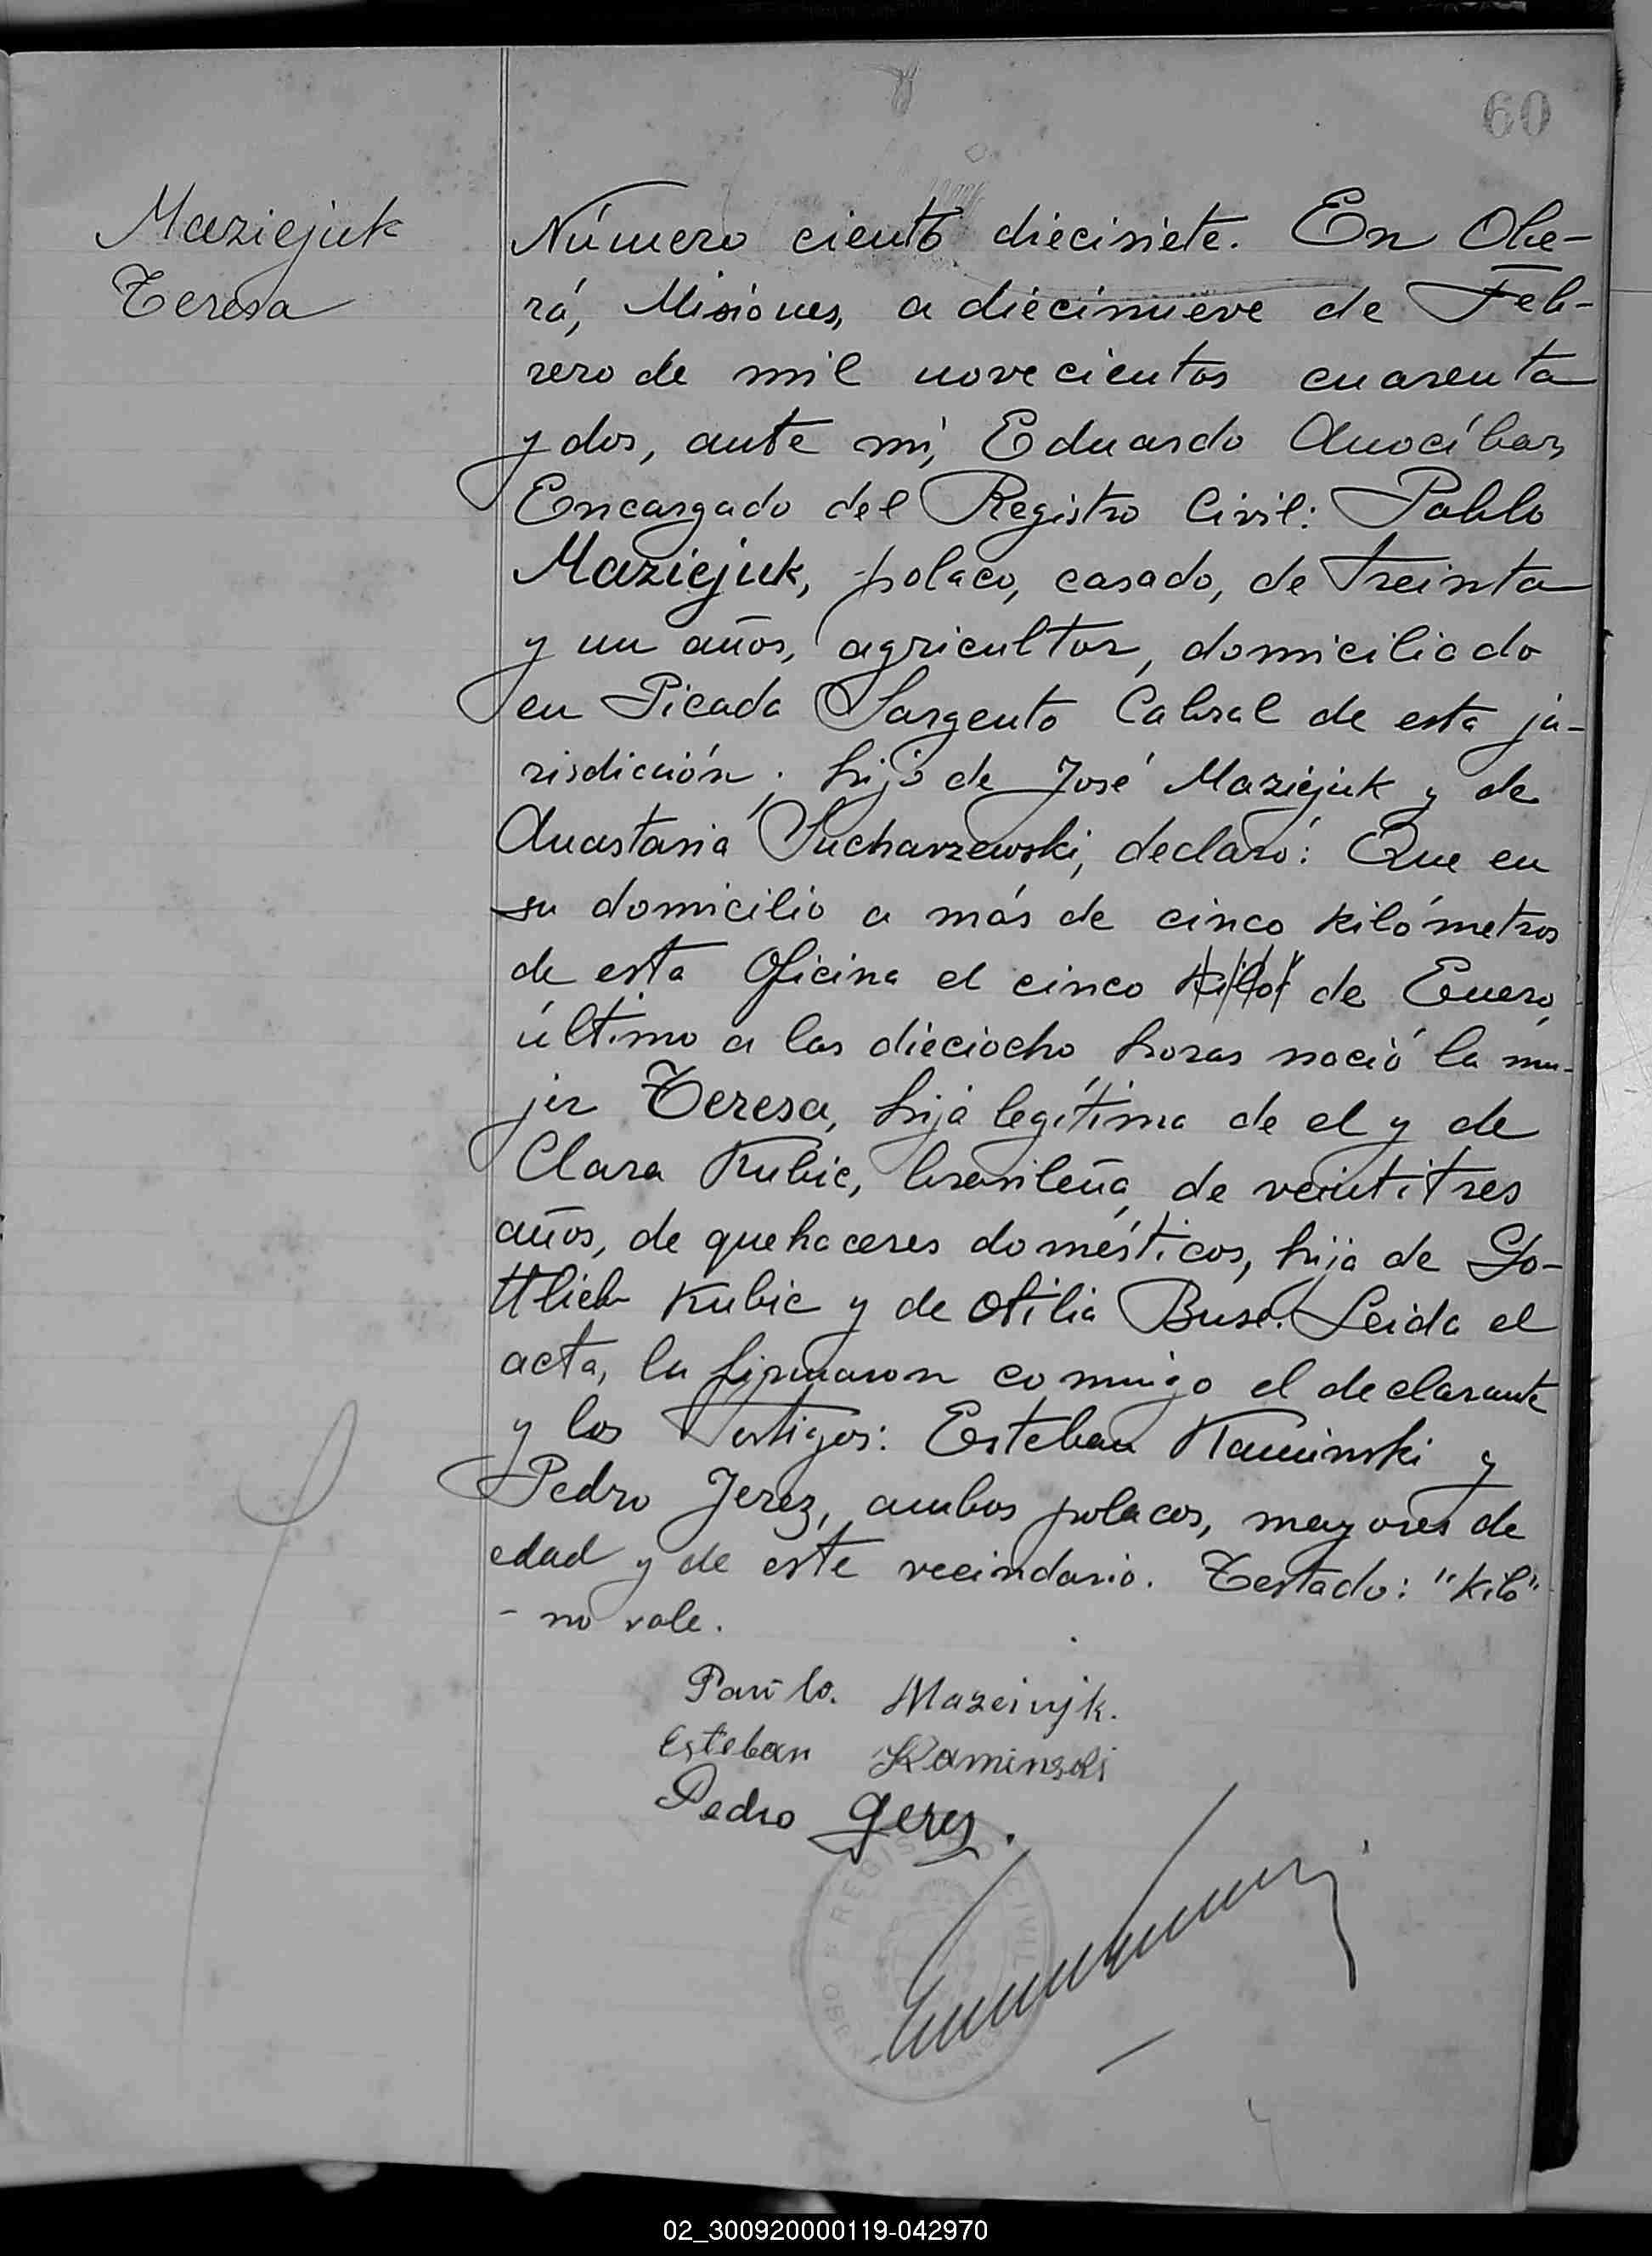 60
Maziejuk
Teresa
Número ciento diecisiete. En Obe-
rá, Misiones, a diecinueve de Feb-
rero de mil novecientos cuarenta
y dos, ante mi, Eduardo Anocíbar,
Encargado del Registro Civil: Pablo
Maziejuk, polaco, casado, de treinta
y un años, agricultor, domiciliado
en Picada Sargento Cabral de esta ju-
risdicción, hijo de José Maziejuk y de
Anastasia Sucharzewski, declaró: Que en
su domicilio a más de cinco kilómetros
de esta Oficina el cinco kilo de Enero
último a las dieciocho horas nació la mu-
jer Teresa, hija legítima de el y de
Clara Kubic, brasileña, de veintitres
años, de quehaceres domésticos, hija de Go-
ttlieb Kubic y de Otilia Buse. Leida el
acta, la firmaron conmigo el declarante
y los Testigos: Esteban Kaminski y
Pedro Jerez, ambos polacos, mayores de
edad y de este vecindario. Testado: "kilo"
- no vale.
Paúlo. Mazeiujk.
Esteban Kaminski
Pedro Gerez.
REGISTRO CIVIL
02_300920000119-042970